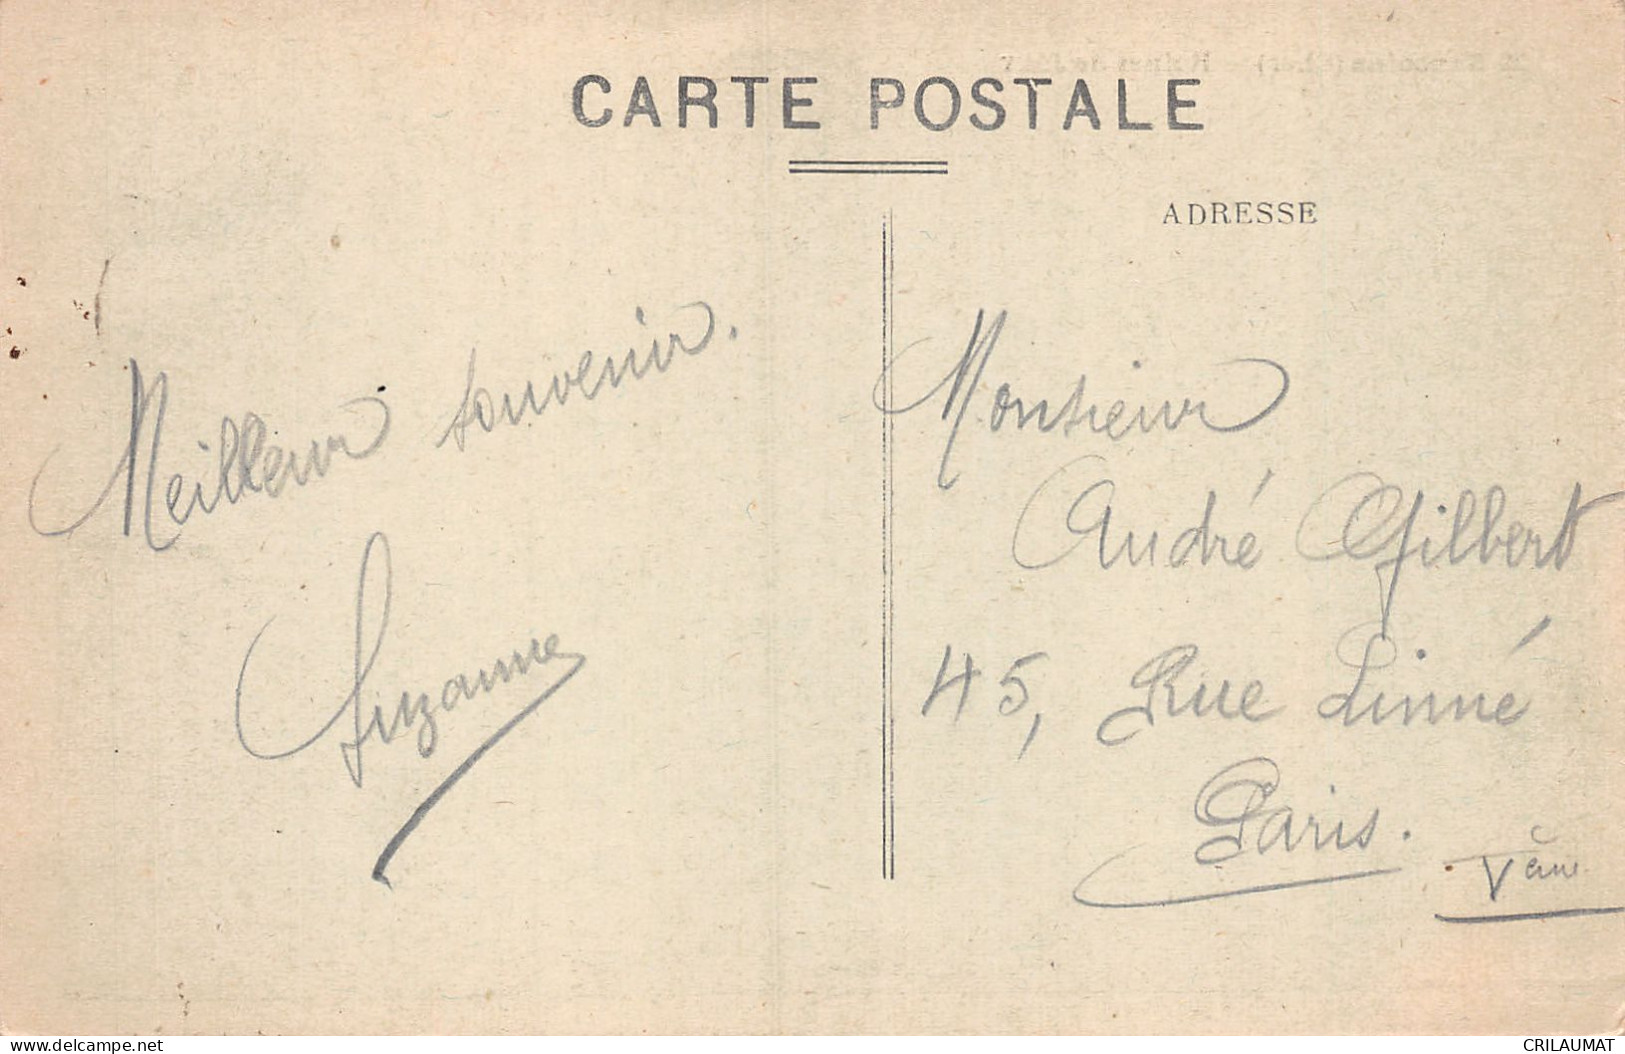 CARTE POSTALE
ADRESSE
Meilleur souvenir.
Suzanne
Monsieur
André Gilbert
45, Rue Linné
Paris.
Vème
www.delcampe.net
CRILAUMAT